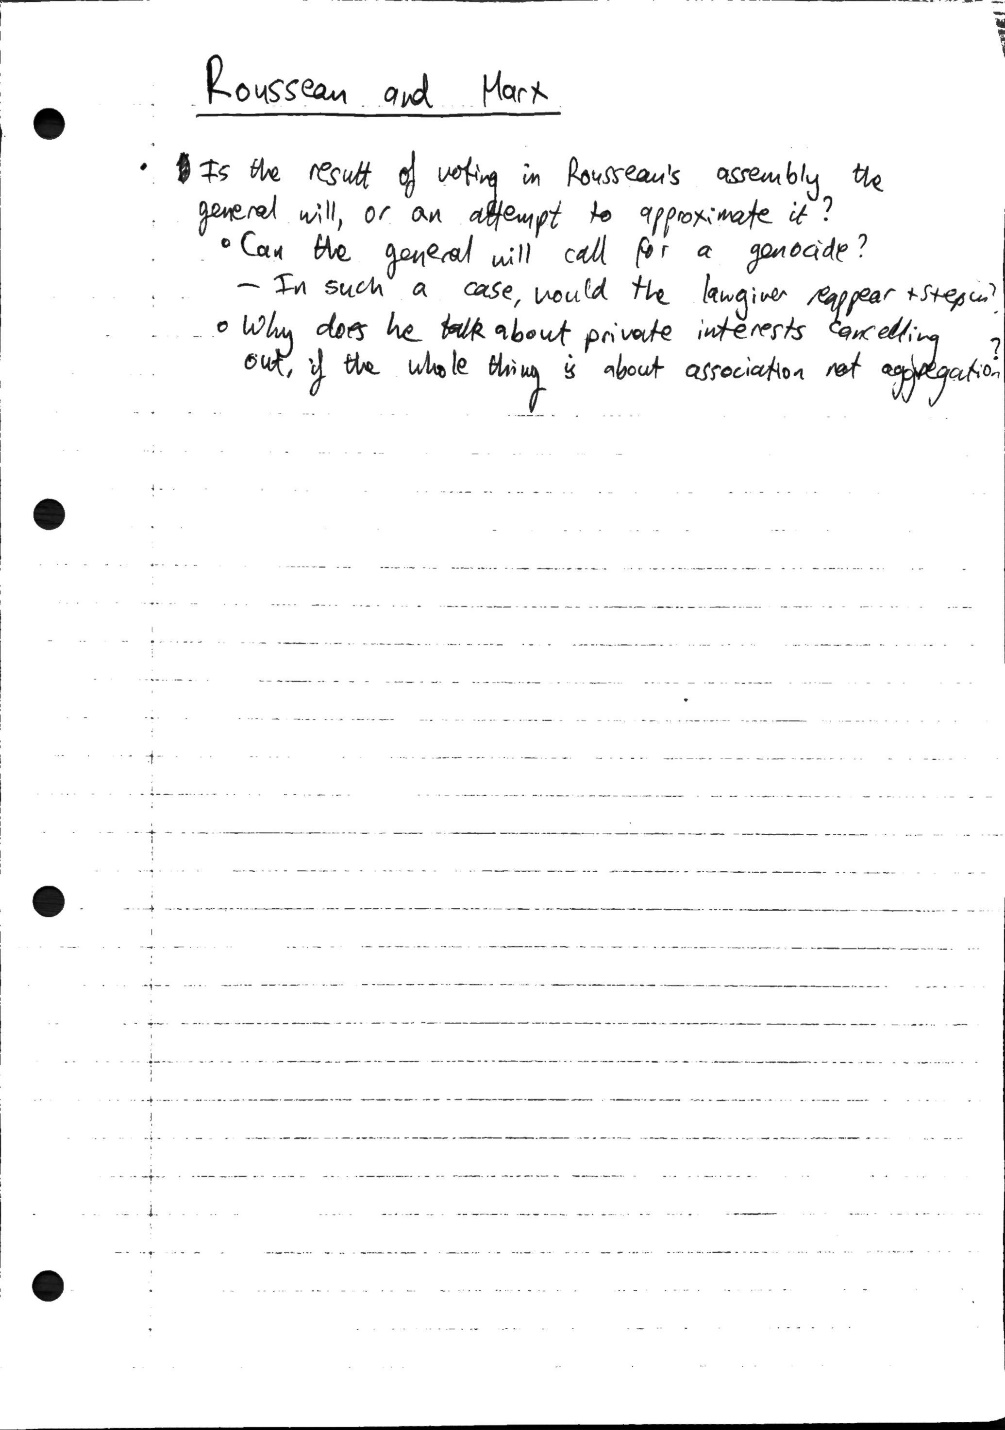 Rousseau and Marx
• Is the result of voting in Rousseau's assembly the
general will, or an attempt to approximate it?
◦ Can the general will call for a genocide?
– In such a case, would the lawgiver reappear + step in?
◦ Why does he talk about private interests cancelling
out, if the whole thing is about association not aggregation?